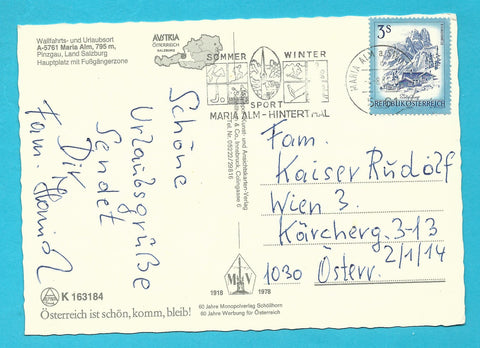 Wallfahrts- und Urlaubsort
A-5761 Maria Alm, 795 m,
Pinzgau, Land Salzburg
Hauptplatz mit Fußgängerzone
AUSTRIA
ÖSTERREICH
SALZBURG
SOMMER WINTER
SPORT
MARIA ALM - HINTERTHAL
MARIA ALM
3S
REPUBLIK ÖSTERREICH
Schöne
Urlaubsgrüße
Sendet
Dir
Fam.
Fam.
Kaiser Rudolf
Wien 3.
Kärcherg. 3-13
2/1/14
1030 Österr.
Kunst- und Ansichtskarten-Verlag
& Co., Innsbruck,
Tel. 05222/29816
K 163184
Österreich ist schön, komm, bleib!
1918 1978
60 Jahre Monopolverlag Schöllhorn
60 Jahre Werbung für Österreich